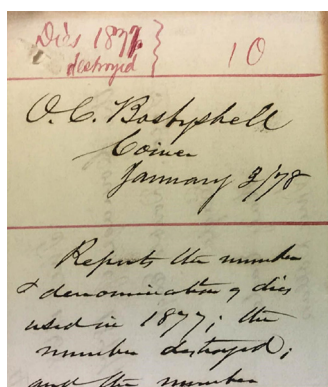 Dies 1877 }
destroyed
10
O. C. Bosbyshell
Coiner
January 3/78
Reports the number
& denomination of dies
used in 1877; the
number destroyed;
and the number